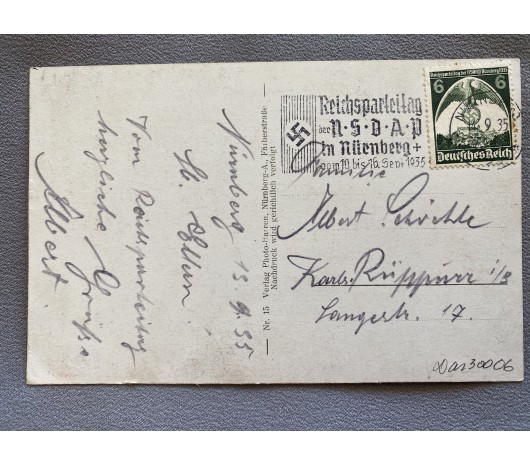 Nürnberg 13.9.35
M. Eltern!
Vom Reichsparteitag
herzliche Grüße
Albert.
Nr. 15 Verlag Photo-Harren, Nürnberg-A., Färberstraße
Nachdruck wird gerichtlich verfolgt
Reichsparteitag
der N·S·D·A·P
in Nürnberg +
vom 10. bis 16. Sept. 1935
Reichsparteitag der NSDAP Nürnberg 1935
6 6
Deutsches Reich
9.35
Familie
Albert
Karlsr. Rüppurr i/B
Langestr. 17.
Das30006